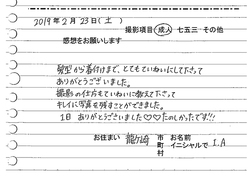 2019年2月23日(土)
撮影項目 成人 七五三・その他
感想をお願いします
髪型から着付けまで、とてもていねいにして下さって
ありがとうございました。
撮影の仕方もていねいに教えて下さって
キレイに写真を残すことができました。
1日 ありがとうございました♡♡たのしかったです!!!
お住まい 龍ケ崎 市町村 お名前 イニシャルで I.A